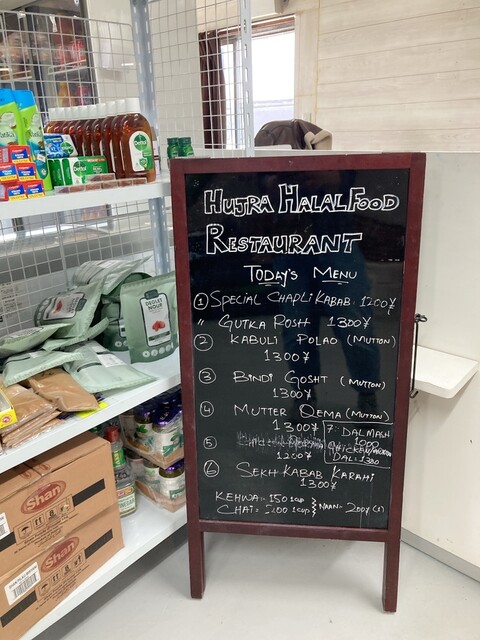 HUJRA HALAL FOOD
RESTAURANT
TODAY'S MENU
① SPECIAL CHAPLI KABAB: 1200¥
〃 GUTKA ROSH 1300¥
② KABULI POLAO (MUTTON)
1300¥
③ BINDI GOSHT (MUTTON)
1300¥
④ MUTTER QEMA (MUTTON)
1300¥
7: DAL MASH
1000
⑤
1200
DAL = 1300
⑥ SEKH KABAB KARAHI
1300¥
KEHWA = 150 1 CUP
CHAI = 200 1 CUP
NAAN = 200¥ (1)
Dettol
DEGLET NOUR
Shan
Shan